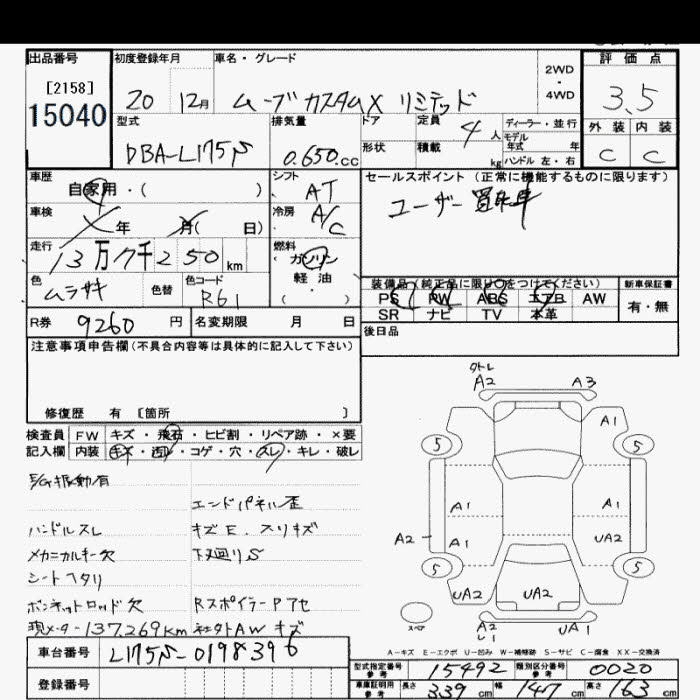 出品番号
[2158]
15040
初度登録年月
20 12月
車名・グレード
ムーブカスタムX リミテッド
2WD
・
4WD
評価点
3.5
外装 内装
C C
型式
DBA-L175S
排気量
0.650 cc
ドア
形状
定員
4人
積載
kg
ディーラー・並行
モデル
年式 年
ハンドル 左・右
車歴
自家用・( )
シフト
AT
セールスポイント (正常に機能するものに限ります)
ユーザー買取車
車検
年 月( 日)
冷房
A/C
走行
13万7千250km
燃料
ガソリン
軽油
( )
色
ムラサキ
色替
色コード
R61
装備品(純正品に限り○をつけてください)
PS PW ABS エアB AW
SR ナビ TV 本革
新車保証書
有・無
R券
9260円
名変期限 月 日
後日品
注意事項申告欄(不具合内容等は具体的に記入して下さい)
修復歴 有 [箇所 ]
検査員
記入欄
FW キズ・飛石・ヒビ割・リペア跡・×要
内装 キズ・凹・コゲ・穴・スレ・キレ・破レ
E/G振動有
エンドパネル歪
ハンドルスレ
キズE.スリキズ
メカニカルキー欠
下廻りS
シートヘタリ
ボンネットロッド欠
RスポイラーPアセ
現メーター137,269km
社外AWキズ
クトレ
A2 A3
A1
5 5
A1 A1
A2 A1 UA2
5 5
UA2 UA2
スペア
A2
UA1
A−キズ E−エクボ U−凹み W−補修跡 S−サビ C−腐食 XX−交換済
車台番号
L175S-0198396
登録番号
型式指定番号
参考
15492
類別区分番号
参考
0020
車庫証明用
参考
長さ 339cm 幅 147cm 高さ 163cm